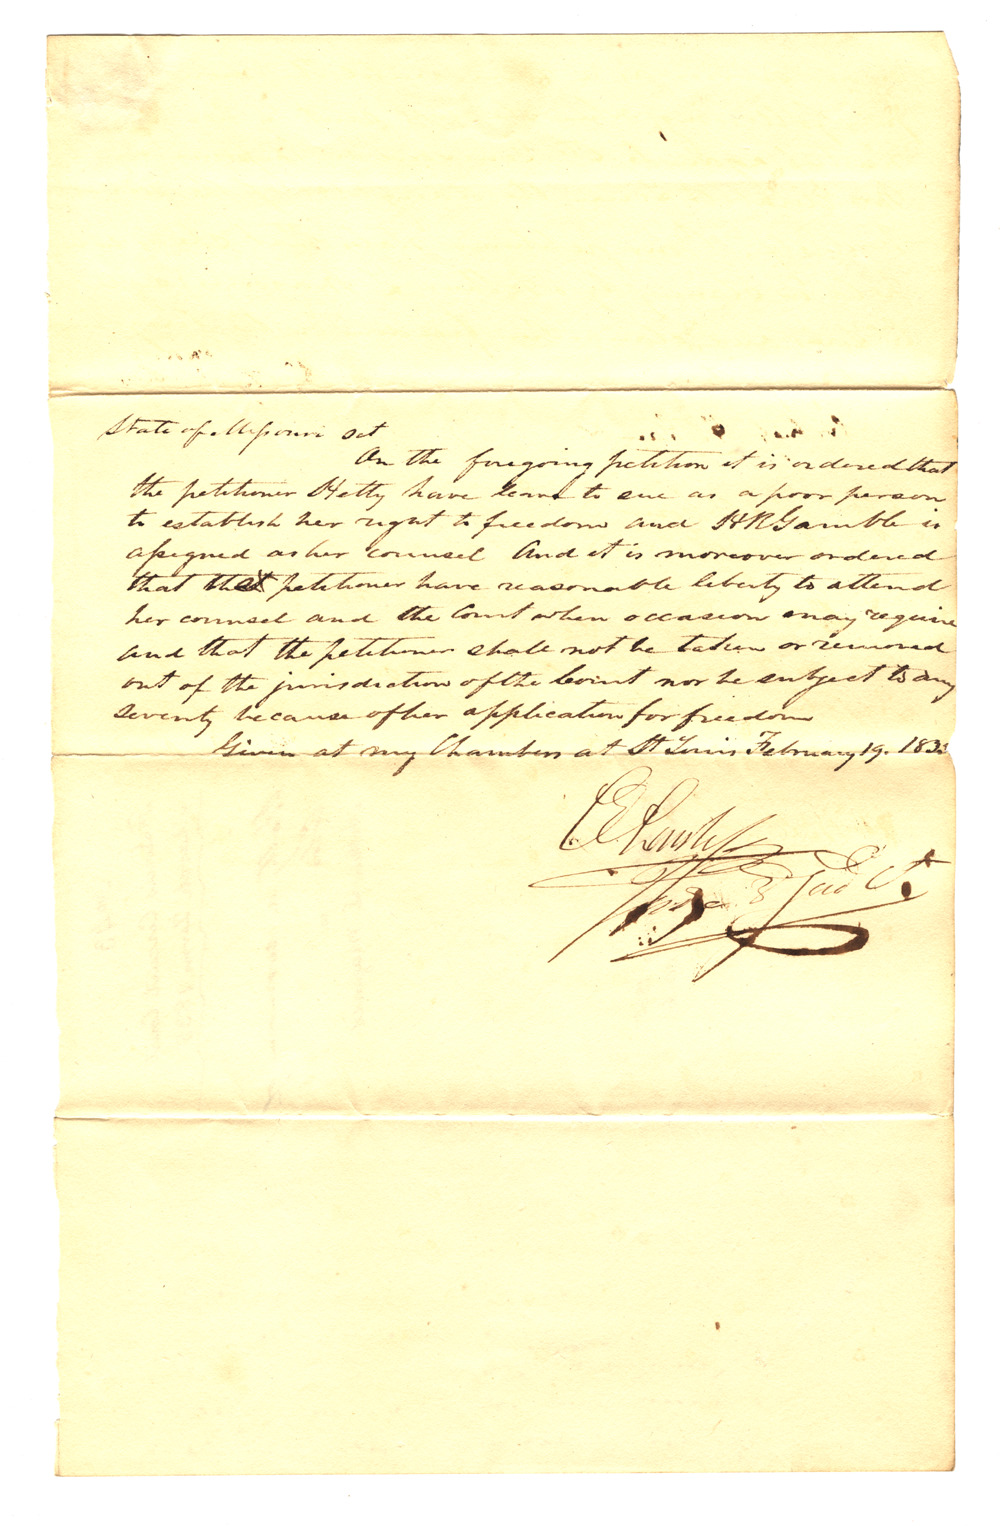 State of Missouri Sct
On the foregoing petition it is ordered that
the petitioner Hetty have leave to sue as a poor person
to establish her right to freedom and H R Gamble is
assigned as her counsel And it is moreover ordered
that the petitioner have reasonable liberty to attend
her counsel and the Court when occasion may require
and that the petitioner shall not be taken or removed
out of the jurisdiction of the Court nor be subject to any
severity because of her application for freedom
Given at my Chambers at St Louis February 19. 183
Judge 3 Jud Ct